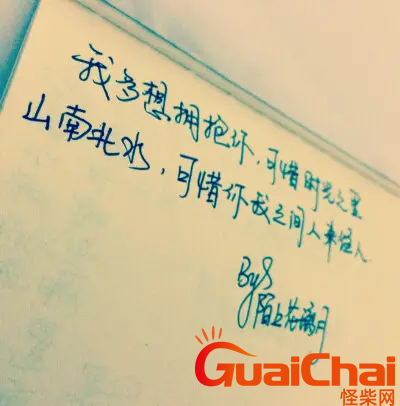 我多想拥抱你，可惜时光之里
山南北水，可惜你我之间人来人
By
陌上
GuaiChai
怪柴网